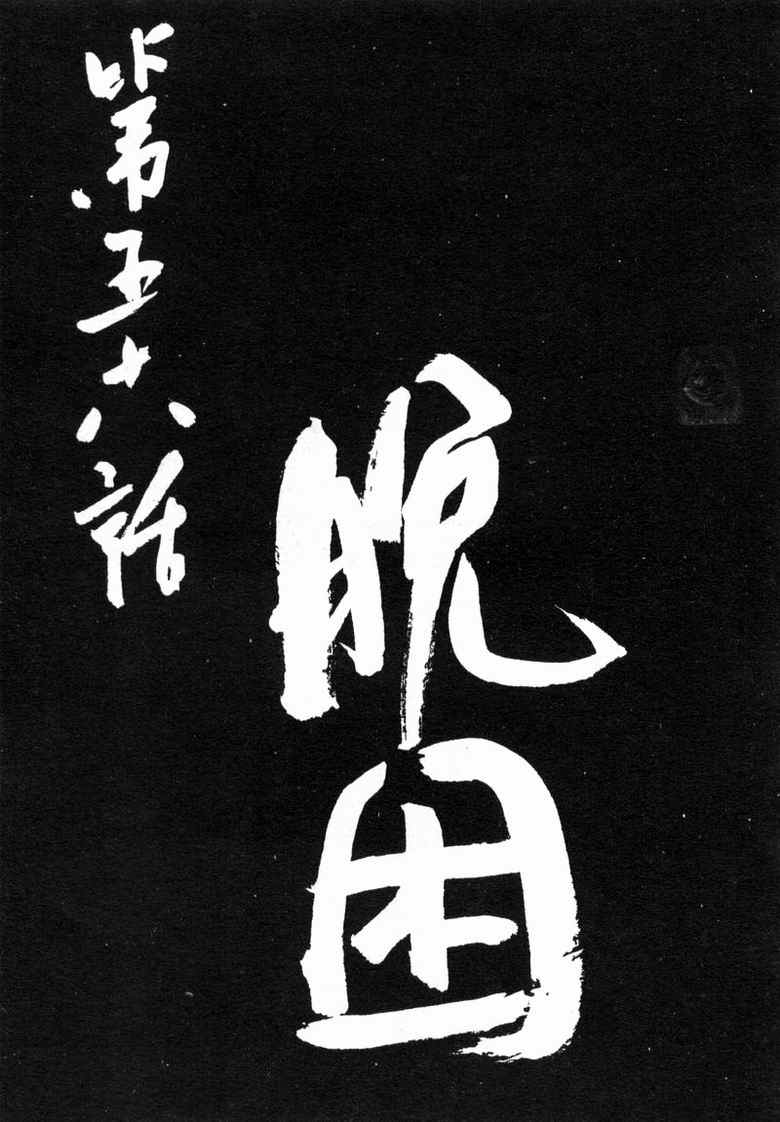 第五十八話
脫困